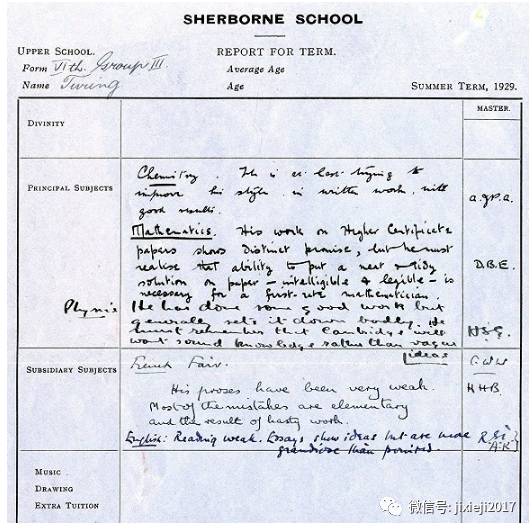 SHERBORNE SCHOOL
UPPER SCHOOL. REPORT FOR TERM.
Form VIth. Group III. Average Age
Name Turing Age SUMMER TERM, 1929.
MASTER.
DIVINITY
PRINCIPAL SUBJECTS
Chemistry. He is at last trying to
improve his style in written work, with
good results. a.J.P.a.
Mathematics. His work on Higher Certificate
papers shows distinct promise, but he must
realise that ability to put a neat & tidy
solution on paper - intelligible & legible - is
necessary for a first-rate mathematician. D.B.E.
Physics He has done some good work but
generally sets it down badly. He
must remember that Cambridge will
want sound knowledge rather than vague
ideas H.S.G.
SUBSIDIARY SUBJECTS
French Fair.
His proses have been very weak.
Most of the mistakes are elementary
and the result of hasty work.
English: Reading weak. Essays show ideas but are more
grandiose than
MUSIC
DRAWING
EXTRA TUITION
微信号: jixieji2017